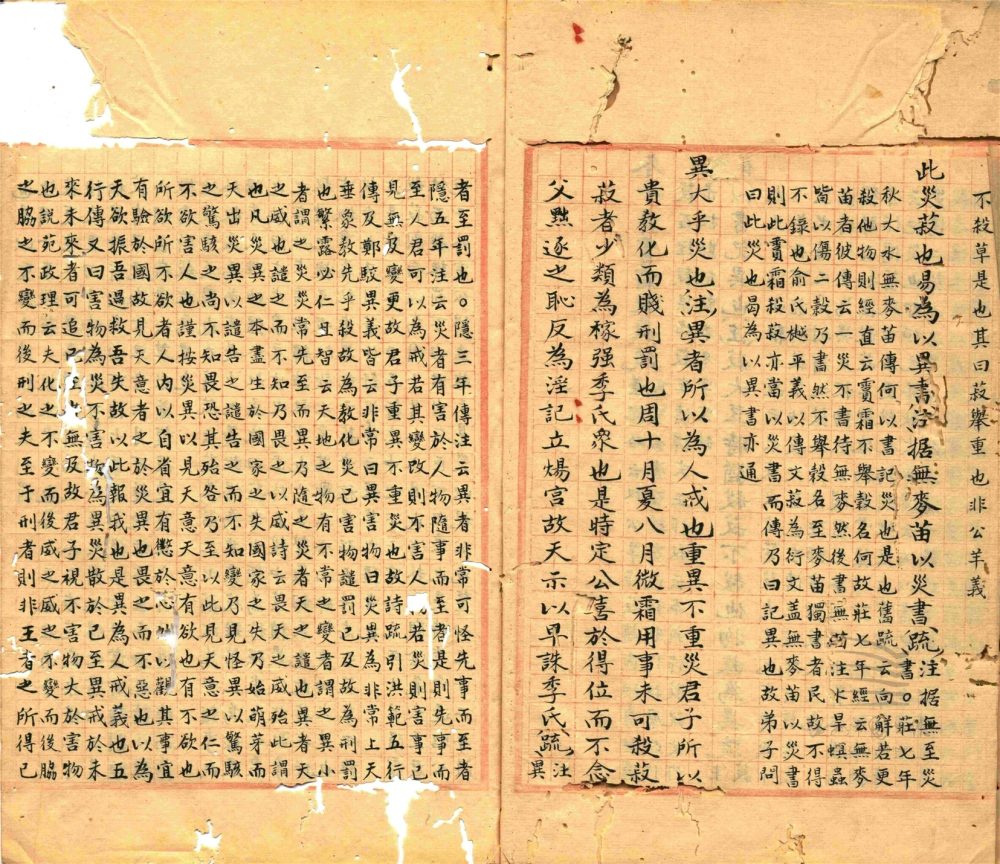 不殺草是也其曰菽舉重也非公羊義
此災菽也曷為以異書注据無麥苗以災書疏注据無至災
書○莊七年
秋大水無麥苗傳何以書記災也是也舊疏云向解若更
殺他物則經直云霣霜不舉穀名何故莊七年經云無麥
苗者彼傳云一災不書待無麥然後書無苗注水旱螟蟲
皆以傷二穀乃書然不舉穀名至麥苗獨書者民故不得
不錄也俞氏樾平義以傳文菽為衍文蓋無麥苗以災書
則此霣霜殺菽亦當以災書而傳乃曰記異也故弟子問
曰此災也曷為以異書亦通
異大乎災也注異者所以為人戒也重異不重災君子所以
貴教化而賤刑罰也周十月夏八月微霜用事未可殺菽
菽者少類為稼强季氏象也是時定公喜於得位而不念
父黜逐之恥反為淫記立煬宮故天示以早誅季氏疏注
異
者至罰也○隱三年傳注云異者非常可怪先事而至者
隱五年注云災者有害於人物隨事而至者是則先事而
至人君可以為戒若其變改則不害人若災則害事已
見無及變更故君子重異不重災也故詩疏引洪範五行
傳及鄭駮異義皆云非常曰異害物曰災異為非常上天
垂象教先乎殺故為教化災已害物譴罰已及故為刑罰
也繁露必仁且智云天地之物有不常之變者謂之異小
者謂之災災常先至而異乃隨之災者天之譴也異者天
之威也譴之而不知乃畏之以威詩云畏天之威殆此謂
也凡災異之本盡生於國家之失國家之失乃始萌芽而
天出災異以譴告之譴告之而不知變乃見怪異以驚駭
之驚駭之尚不知畏恐其殆咎乃至以此見天意之仁而
不欲害人也謹按災異以見天意天意有欲也有不欲也
所欲所不欲者人內以自省宜有懲於心以觀其事宜
有驗於國故見天意者之於災異也畏之而不惡也以為
天欲振吾過救吾失故以此報我也是異為人戒義也五
行傳又曰害物為災不害物為異災散於已至異戒於未
來未來者可追已無及故君子視不害物大於害物
也說苑政理云夫化之不變而後威之威之不變而後脇
之脇之不變而後刑之夫至于刑者則非王者之所得已